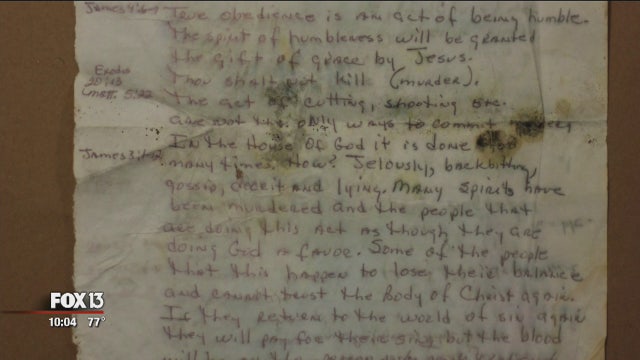 James 4:6-7
True obedience is an act of being humble.
The spirit of humbleness will be granted
the gift of grace by Jesus.
Exodo
20:13
Matt. 5:22
Thou shalt not kill (murder).
The act of cutting, shooting etc.
are not the only ways to commit
James 3:1-12
In the House of God it is done too
many times. How? Jelously, backbiting,
gossip, deceit and lying. Many spirits have
been murdered and the people that
are doing this act as though they are
doing God a favor. Some of the people
that this happen to lose their balance
and cannot trust the Body of Christ again.
If they return to the world of sin again
they will pay for their sins but the blood
will be on the person
FOX 13
10:04 77°